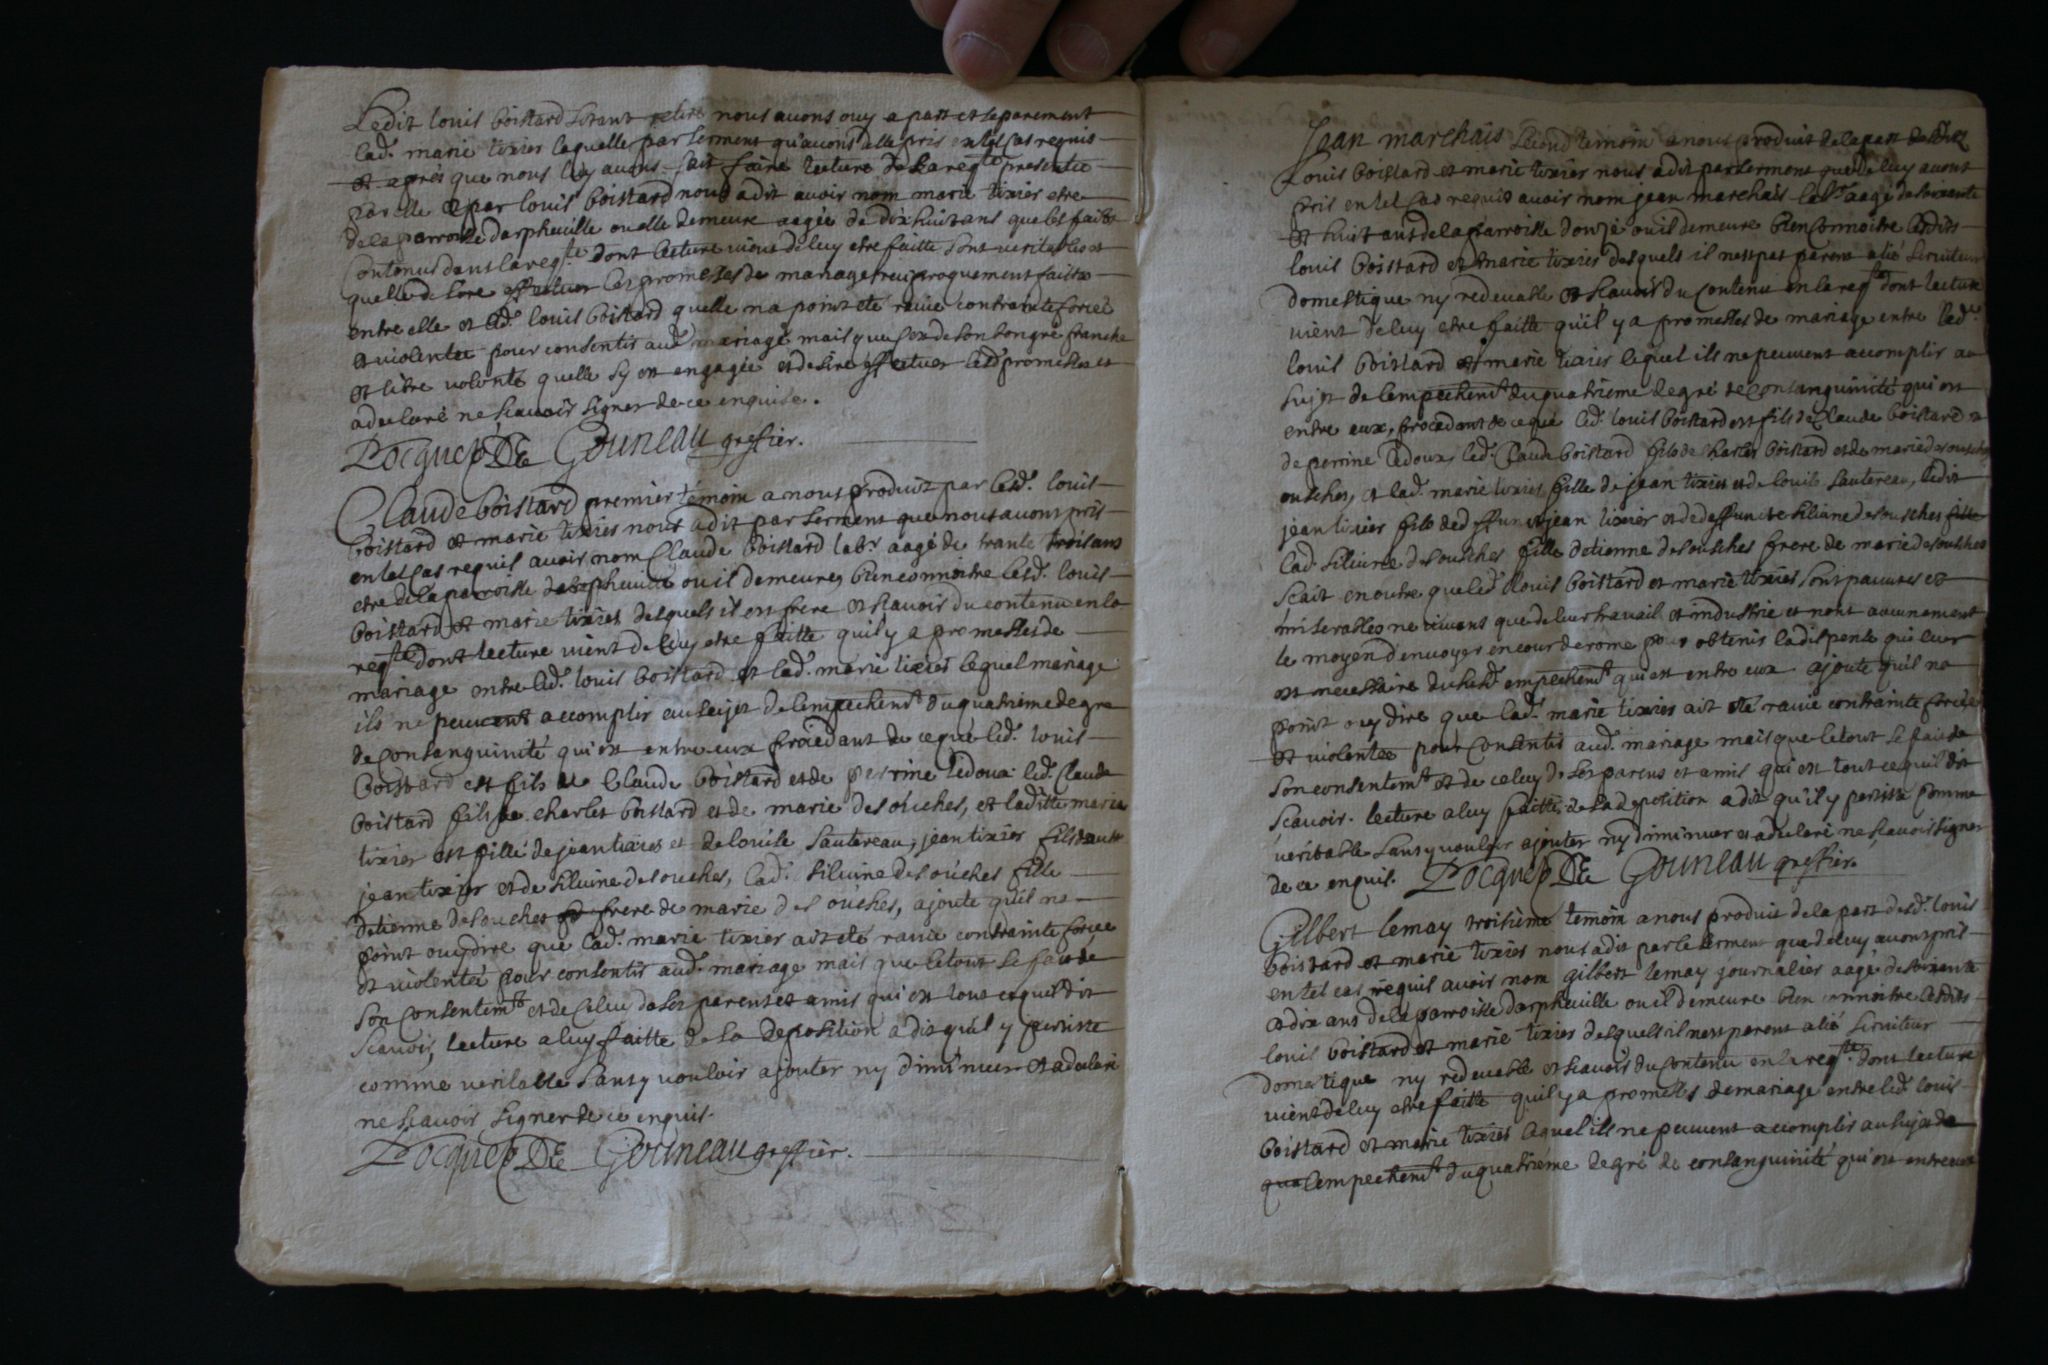 Ledit louis boistard sétant retiré nous auons ouy a part et separement
lad. marie tixier laquelle par serment qu'auons delle pris en tel cas requis
et apres que nous luy auons fait faire lecture de la reqte presentée
par elle et par louis boistard nous a dit auoir nom marie tixier etre
de la parroisse darpheuille ou elle demeure aagée de dix huit ans que les faits
contenus dans la reqte dont lecture vient de luy etre faitte sont veritables et
quelle desire effectuer les promesses de mariage reciproquement faittes
entre elle et led. louis boistard quelle na point eté rauie contrainte forcée
et violentée pour consentir aud. mariage mais que cest de son bon gré franche
et libre volonté quelle sy est engagée et desire effectuer lesd. promesses et
a declaré ne scauoir signer de ce enquise.
Pocquet DE Gouneau greffier.
Claude boistard premier témoin a nous produit par lesd. louis
boistard et marie tixier nous a dit par serment que nous auons pris
en tel cas requis auoir nom Claude boistard labr. aagé de trante trois ans
etre de la parroisse darpheuille ou il demeure, bien connoitre lesd. louis
boistard et marie tixier desquels il est frere et scauoir du contenu en la
reqte dont lecture vient de luy etre faitte quil y a promesses de
mariage entre led. louis boistard et lad. marie tixier lequel mariage
ils ne peuuent accomplir au sujet de lempechemt du quatrieme degre
de consanguinité qui est entre eux procedant de ce que led. louis
boistard est fils de Claude boistard et de perrine ledoux led. Claude
boistard fils de charles boistard et de marie desouches, et laditte marie
tixier est fille de jean tixier et de louise sautereau, jean tixier fils dautre
jean tixier et de siluine desouches, lad. siluine desouches fille
detienne desouches frere de marie desouches, ajoute qu'il na
point ouy dire que lad. marie tixier ait eté rauie contrainte forcée
et violentée pour consentir aud. mariage mais que le tout se fait de
son consentemt et de celuy de ses parens et amis qui est tout ce quil dit
scauoir, lecture a luy faitte de sa deposition a dit qu'il y persiste
comme veritable sans y vouloir ajouter ny diminuer et a declaré
ne scauoir signer de ce enquis.
Pocquet DE Gouneau greffier.
Jean marchais second temoin a nous produit de la part desd.
Louis boistard et marie tixier nous a dit par serment que de luy auons
pris en tel cas requis auoir nom jean marchais labr. aagé de soixante
et huit ans de la parroisse ou il demeure bien connoitre lesdits
louis boistard et marie tixier desquels il nest pas parent alié seruiteur
domestique ny redeuable et scauoir du contenu en la reqte dont lecture
vient de luy etre faitte qu'il y a promesses de mariage entre led.
louis boistard et marie tixier lequel ils ne peuuent accomplir au
sujet de lempechemt du quatrieme degré de consanguinité qui est
entre eux, procedant de ce que led. louis boistard est fils de Claude boistard et
de perrine ledoux, led. Claude boistard fils de charles boistard et de marie desouches
ousches, et lad. marie tixier fille de jean tixier et de louise sautereau, ledit
jean tixier fils de deffunt jean tixier et de deffuncte siluine desousches fille
lad. siluine desousches fille detienne desousches frere de marie desousches
scait en outre que led. louis boistard et marie tixier sont pauures et
miserables ne viuans que de leur trauail et industrie et nont aucunement
le moyen d'enuoyer en cour de rome pour obtenir la dispense qui leur
est necessaire dususd. empechemt qui est entre eux ajoute qu'il na
point ouy dire que lad. marie tixier ait eté rauie contrainte forcée
et violentée pour consentir aud. mariage mais que le tout se fait de
son consentemt et de celuy de ses parens et amis qui est tout ce quil dit
scauoir. lecture a luy faitte de sa deposition a dit qu'il y persiste comme
veritable sans y vouloir ajouter ny diminuer et a declaré ne scauoir signer
de ce enquis. Pocquet DE Gouneau greffier.
Gilbert lemay troisieme temoin a nous produit de la part desd. louis
boistard et marie tixier nous a dit par le serment que de luy auons pris
en tel cas requis auoir nom gilbert lemay journalier aagé de soixante
a dix ans de la parroisse darpheuille ou il demeure bien connoitre lesdits
louis boistard et marie tixier desquels il nest parent alié seruiteur
domestique ny redeuable et scauoir du contenu en la reqte dont lecture
vient de luy etre faitte quil y a promesses de mariage entre led. louis
boistard et marie tixier lequel ils ne peuuent accomplir au sujet de
que lempechemt du quatriéme degré de consanguinité qui est entre eux